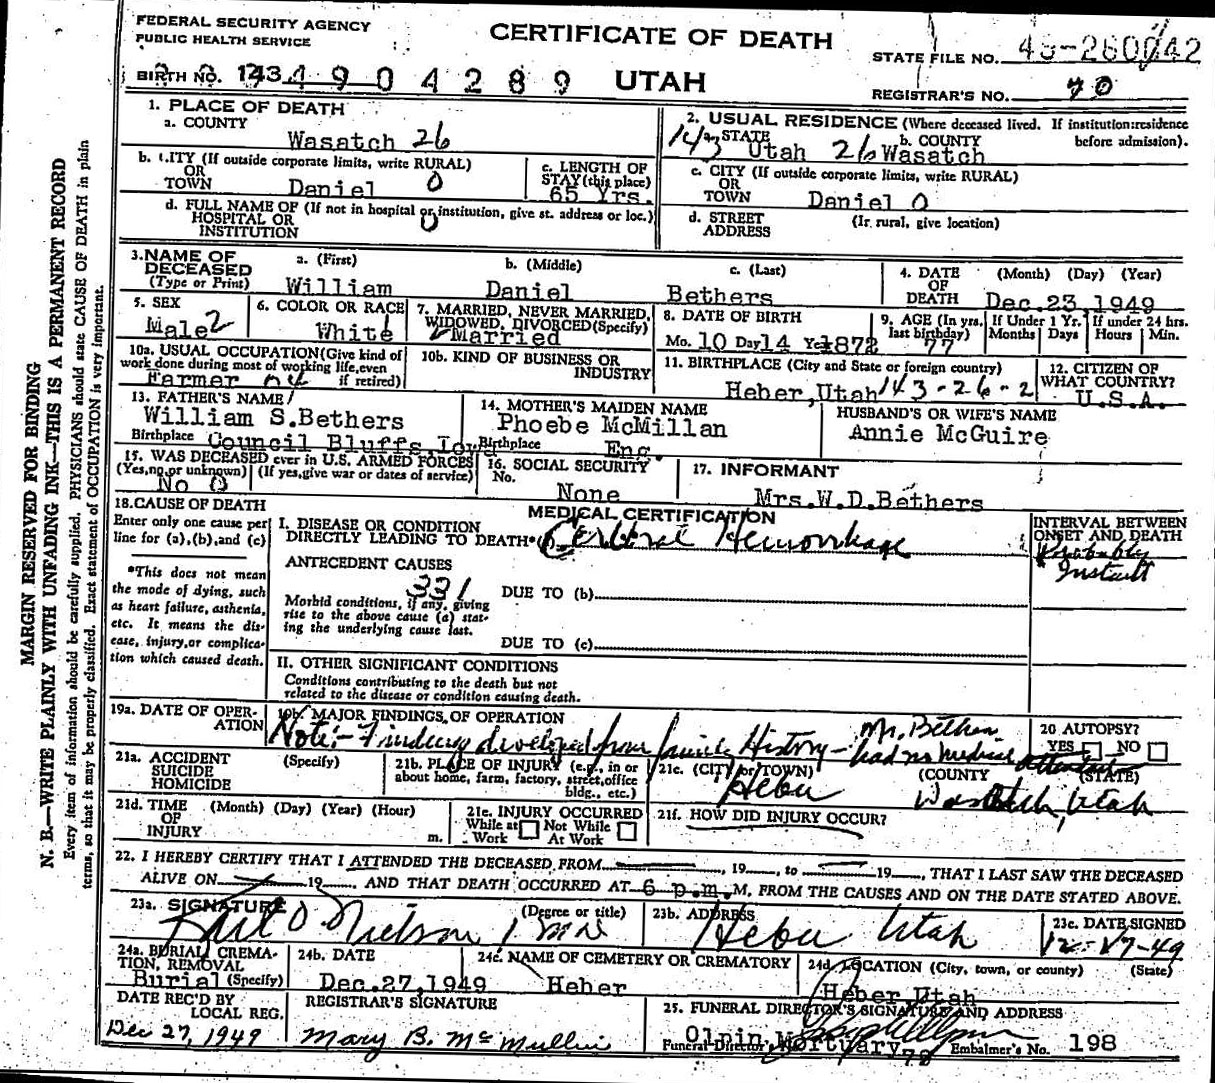 FEDERAL SECURITY AGENCY
PUBLIC HEALTH SERVICE
CERTIFICATE OF DEATH
STATE FILE NO. 49-260042
BIRTH NO. 143 4 9 0 4 2 8 9 UTAH
REGISTRAR'S NO. 70
1. PLACE OF DEATH
a. COUNTY
Wasatch 26
b. CITY (If outside corporate limits, write RURAL)
OR
TOWN Daniel 0
c. LENGTH OF
STAY (this place)
65 Yrs.
d. FULL NAME OF (If not in hospital or institution, give st. address or loc.)
HOSPITAL OR
INSTITUTION 0
2. USUAL RESIDENCE (Where deceased lived. If institution:residence
before admission).
143 a. STATE b. COUNTY
Utah 26 Wasatch
c. CITY (If outside corporate limits, write RURAL)
OR
TOWN Daniel 0
d. STREET (If rural, give location)
ADDRESS
3. NAME OF
DECEASED
(Type or Print)
a. (First) b. (Middle) c. (Last)
William Daniel Bethers
4. DATE (Month) (Day) (Year)
OF
DEATH Dec.23,1949
5. SEX
Male 2
6. COLOR OR RACE
White 1
7. MARRIED, NEVER MARRIED,
WIDOWED, DIVORCED (Specify)
Married
8. DATE OF BIRTH
Mo. 10 Day 14 Yr 1872
9. AGE (In yrs. last birthday)
77
If Under 1 Yr.
Months Days
If under 24 hrs.
Hours Min.
10a. USUAL OCCUPATION (Give kind of
work done during most of working life, even
if retired)
Farmer
10b. KIND OF BUSINESS OR
INDUSTRY
11. BIRTHPLACE (City and State or foreign country)
Heber,Utah 143-26-2
12. CITIZEN OF
WHAT COUNTRY?
U.S.A.
13. FATHER'S NAME
William S.Bethers
Birthplace Council Bluffs, Iowa
14. MOTHER'S MAIDEN NAME
Phoebe McMillan
Birthplace Eng.
HUSBAND'S OR WIFE'S NAME
Annie McGuire
15. WAS DECEASED ever in U.S. ARMED FORCES
(Yes, no, or unknown) (If yes, give war or dates of service)
No 0
16. SOCIAL SECURITY
No.
None
17. INFORMANT
Mrs.W.D.Bethers
18. CAUSE OF DEATH
Enter only one cause per
line for (a), (b), and (c)
*This does not mean
the mode of dying, such
as heart failure, asthenia,
etc. It means the dis-
ease, injury, or complica-
tion which caused death.
MEDICAL CERTIFICATION
I. DISEASE OR CONDITION
DIRECTLY LEADING TO DEATH* (a) Cerbral Hemorrhage
ANTECEDENT CAUSES
331
Morbid conditions, if any, giving
rise to the above cause (a) stat-
ing the underlying cause last.
DUE TO (b)
DUE TO (c)
II. OTHER SIGNIFICANT CONDITIONS
Conditions contributing to the death but not
related to the disease or condition causing death.
INTERVAL BETWEEN
ONSET AND DEATH
Probably
Instant
19a. DATE OF OPER-
ATION
19b. MAJOR FINDINGS OF OPERATION
Note:- Findings developed from family History - Mr. Bethers
had no medical attendant
20 AUTOPSY?
YES NO
21a. ACCIDENT
SUICIDE
HOMICIDE
(Specify)
21b. PLACE OF INJURY (e.g., in or
about home, farm, factory, street, office
bldg., etc.)
21c. (CITY or TOWN) (COUNTY (STATE)
Heber Wasatch, Utah
21d. TIME (Month) (Day) (Year) (Hour)
OF
INJURY m.
21e. INJURY OCCURRED
While at Work Not While At Work
21f. HOW DID INJURY OCCUR?
22. I HEREBY CERTIFY THAT I ATTENDED THE DECEASED FROM , 19 , to 19 , THAT I LAST SAW THE DECEASED
ALIVE ON 19 , AND THAT DEATH OCCURRED AT 6 p.m. M, FROM THE CAUSES AND ON THE DATE STATED ABOVE.
23a. SIGNATURE (Degree or title)
Nielson
23b. ADDRESS
Heber Utah
23c. DATE SIGNED
12-27-49
24a. BURIAL, CREMA-
TION, REMOVAL
Burial (Specify)
24b. DATE
Dec.27,1949
24c. NAME OF CEMETERY OR CREMATORY
Heber
24d. LOCATION (City, town, or county) (State)
Heber,Utah
DATE REC'D BY
LOCAL REG.
Dec 27, 1949
REGISTRAR'S SIGNATURE
Mary B. McMullin
25. FUNERAL DIRECTOR'S SIGNATURE AND ADDRESS
Olpin Mortuary
Funeral Director's Embalmer's No. 198
MARGIN RESERVED FOR BINDING
N. B.—WRITE PLAINLY WITH UNFADING INK—THIS IS A PERMANENT RECORD
Every item of information should be carefully supplied. PHYSICIANS should state CAUSE OF DEATH in plain
terms, so that it may be properly classified. Exact statement of OCCUPATION is very important.